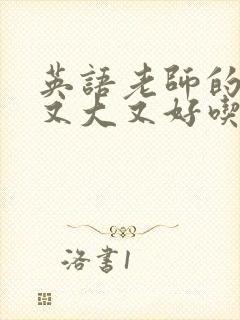 英語老師的
又大又好喫
洛書1